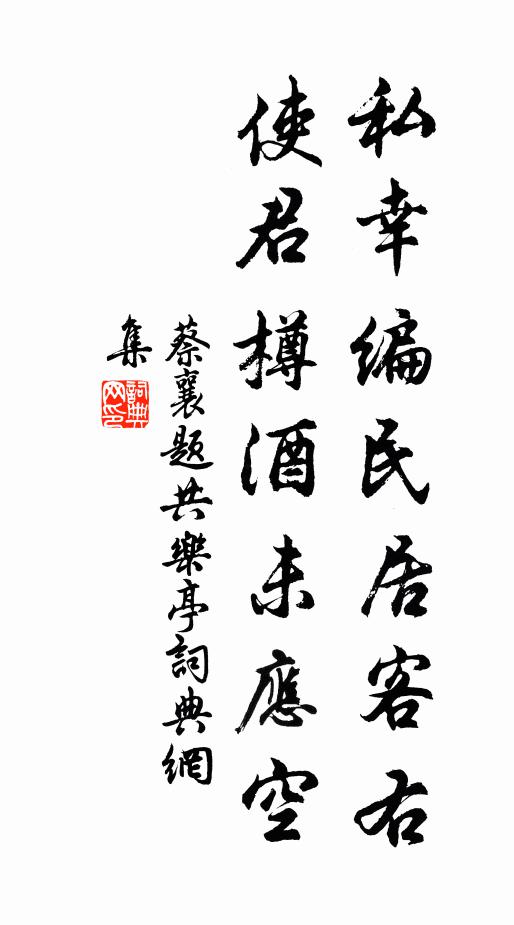 私幸編民居客右
使君樽酒未應空
蔡襄題共樂亭詞典網
集
詞典网印